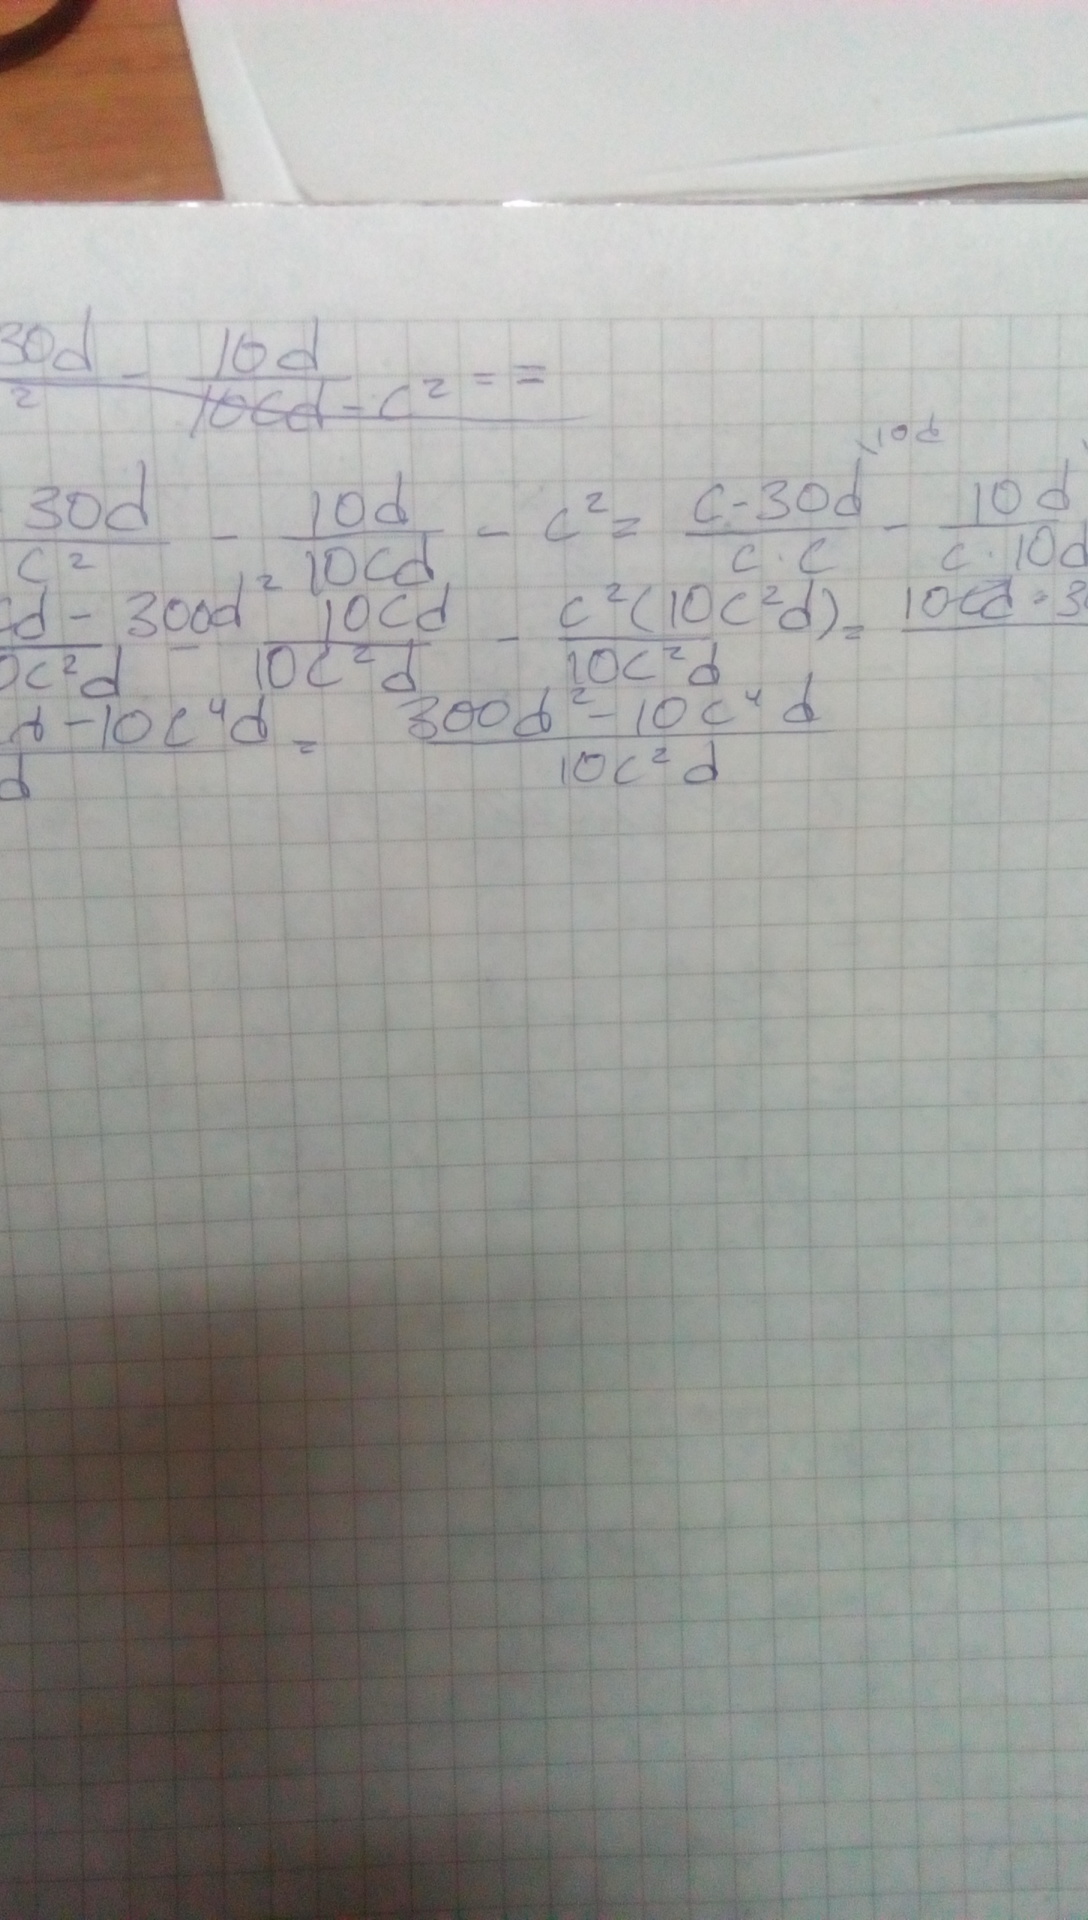 30d/2 - 10d/10cd - c² = =
30d/c² - 10d/10cd - c² = c-30d/c·c \10d - 10d/c·10d
cd - 300d²/0c²d - 10cd/10c²d - c²(10c²d)/10c²d = 10cd - 3
d - 10c⁴d/d = 300d² - 10c⁴d/10c²d